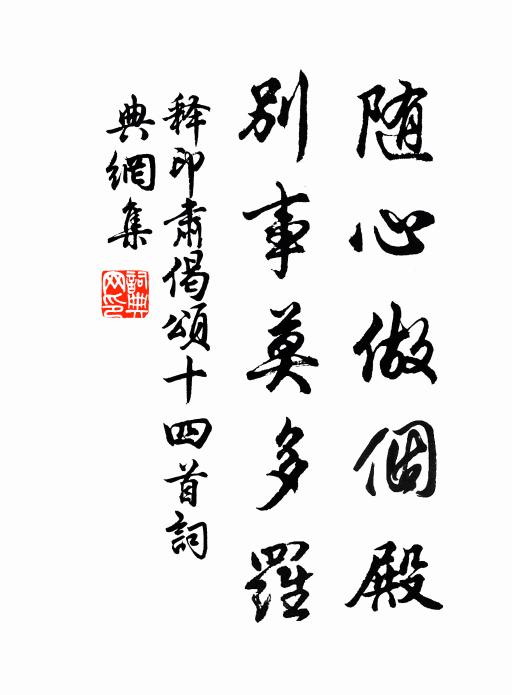 随心做個殿
别事莫多羅
释印肅偈頌十四首詞
典網集
詞典
网印